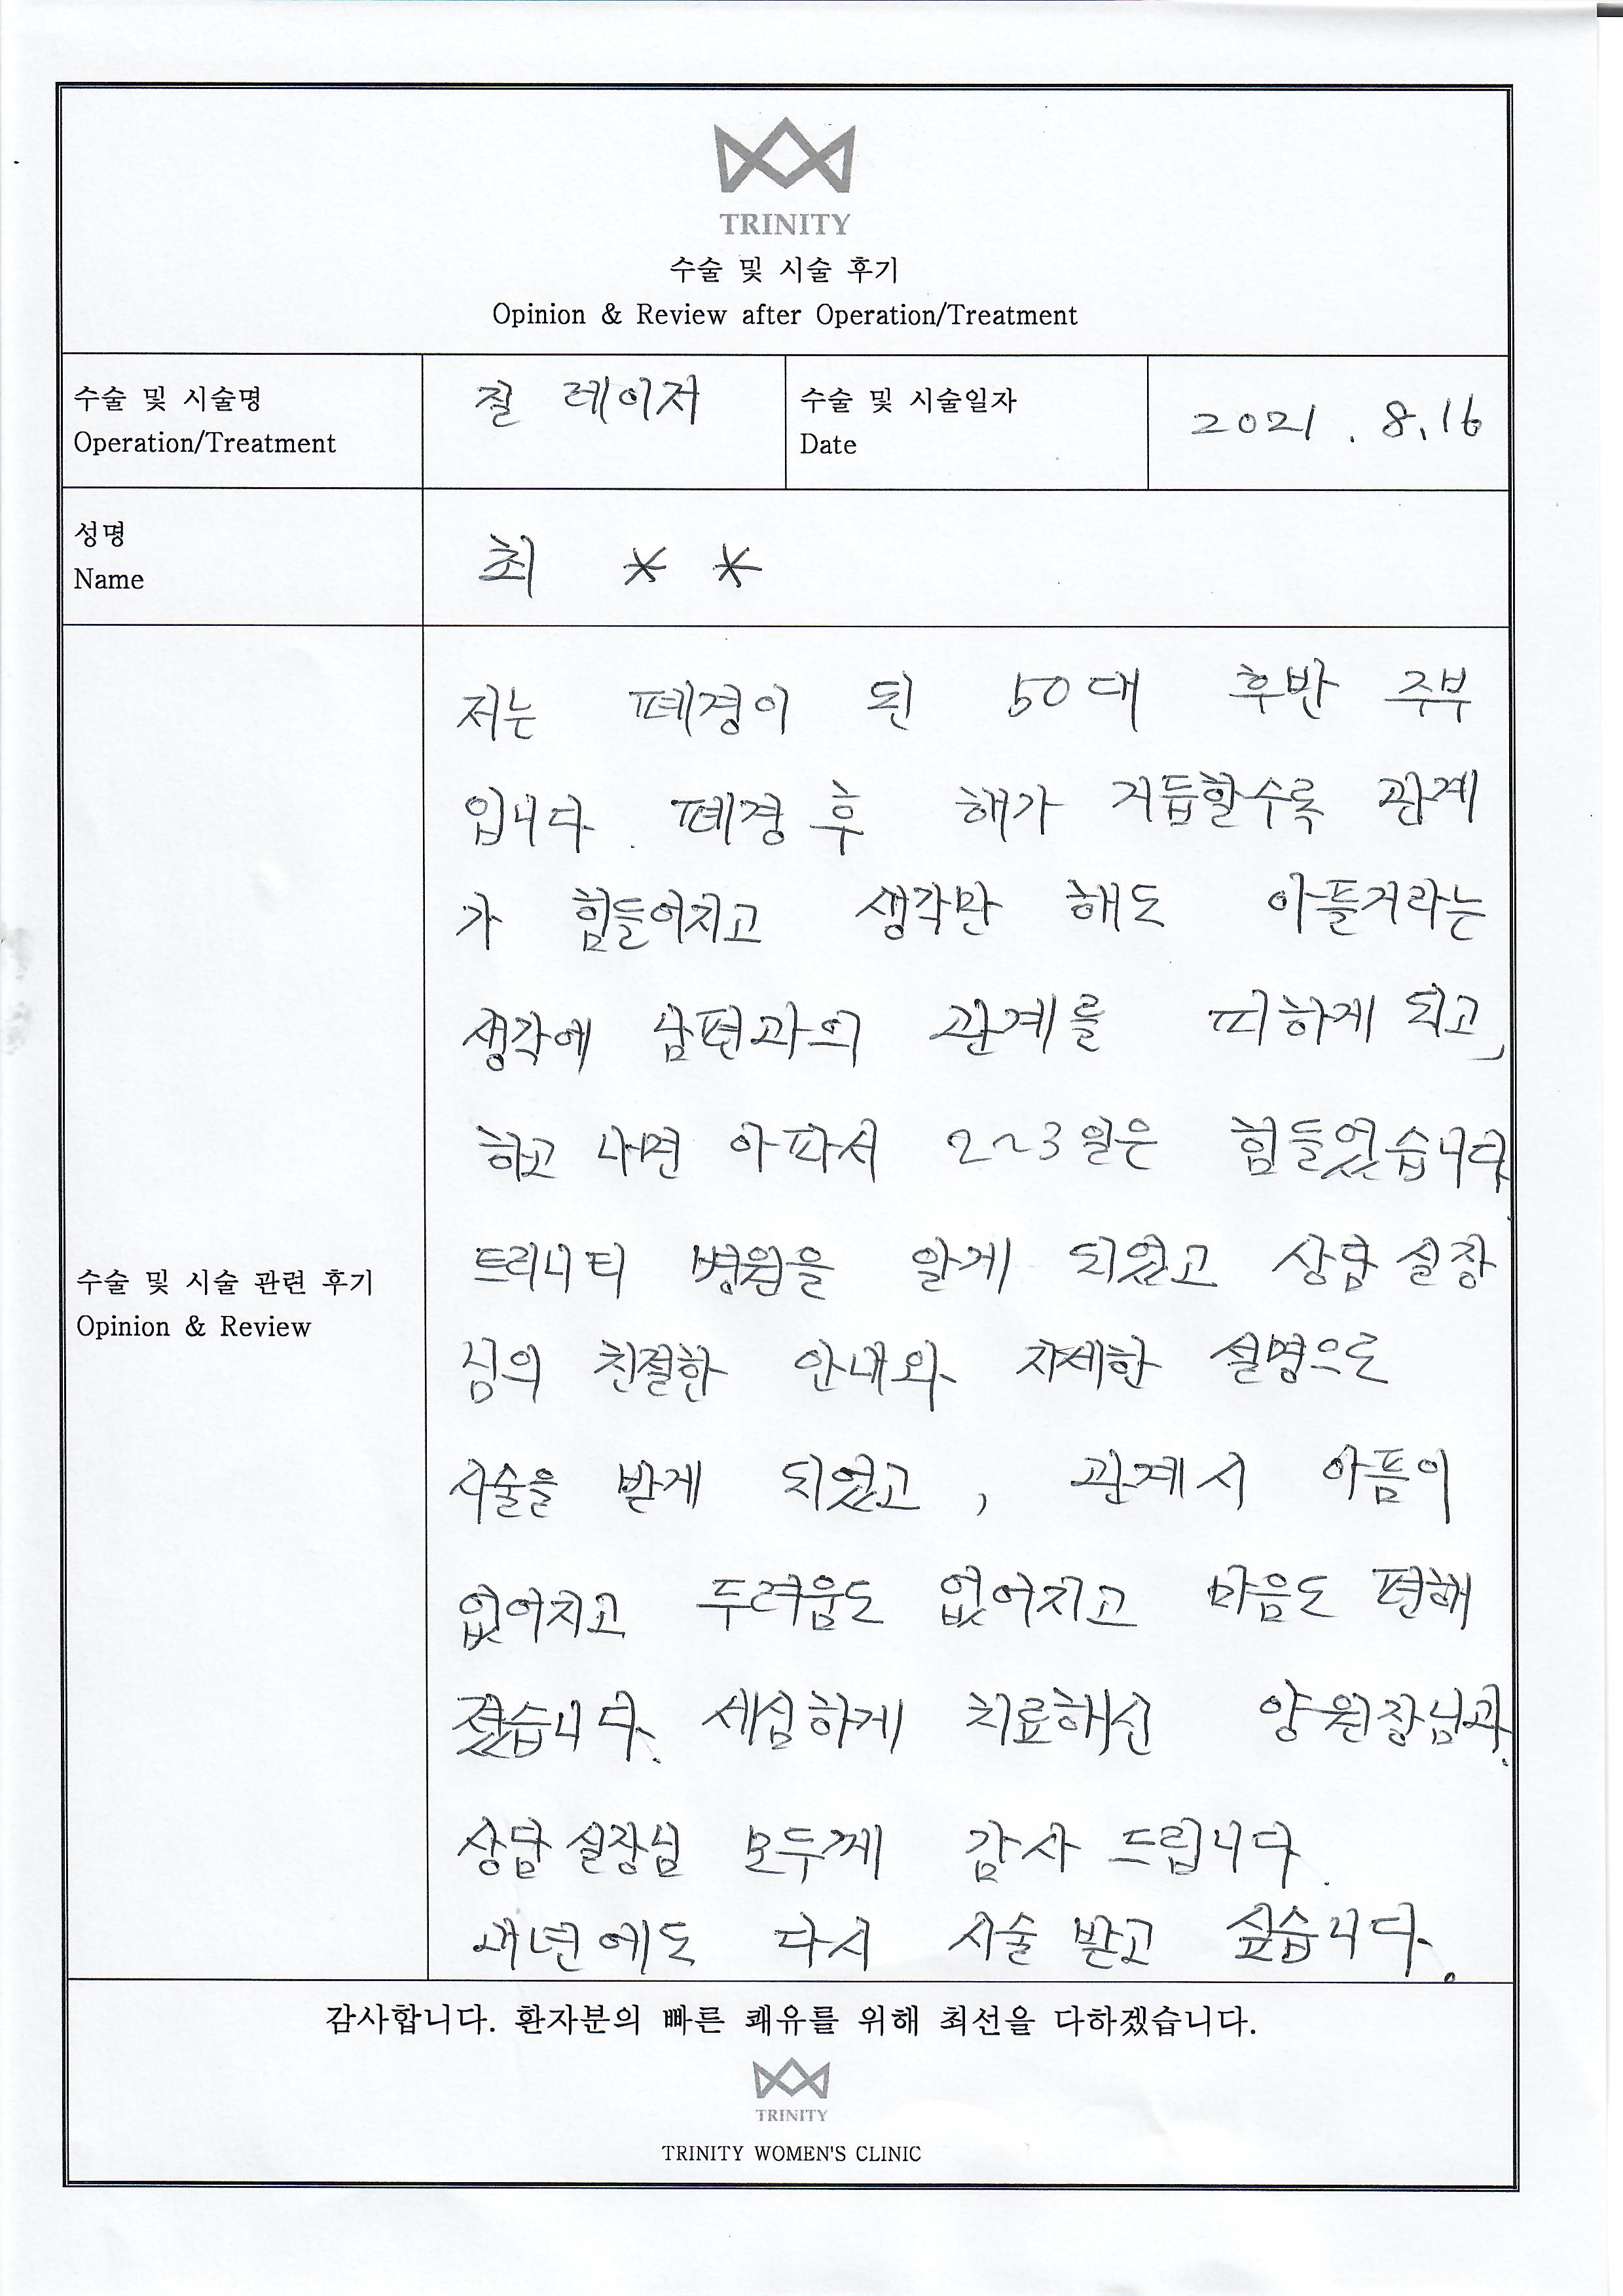 TRINITY
수술 및 시술 후기
Opinion & Review after Operation/Treatment
수술 및 시술명
Operation/Treatment
질 레이저
수술 및 시술일자
Date
2021. 8. 16
성명
Name
최 * *
수술 및 시술 관련 후기
Opinion & Review
저는 폐경이 된 50대 후반 주부
입니다. 폐경 후 해가 거듭할수록 관계
가 힘들어지고 생각만 해도 아플거라는
생각에 남편과의 관계를 피하게 되고,
하고 나면 아파서 2~3일은 힘들었습니다.
트리니티 병원을 알게 되었고 상담 실장
님의 친절한 안내와 자세한 설명으로
시술을 받게 되었고, 관계시 아픔이
없어지고 두려움도 없어지고 마음도 편해
졌습니다. 세심하게 치료해신 양원장님과
상담 실장님 모두게 감사 드립니다.
내년에도 다시 시술 받고 싶습니다.
감사합니다. 환자분의 빠른 쾌유를 위해 최선을 다하겠습니다.
TRINITY
TRINITY WOMEN'S CLINIC